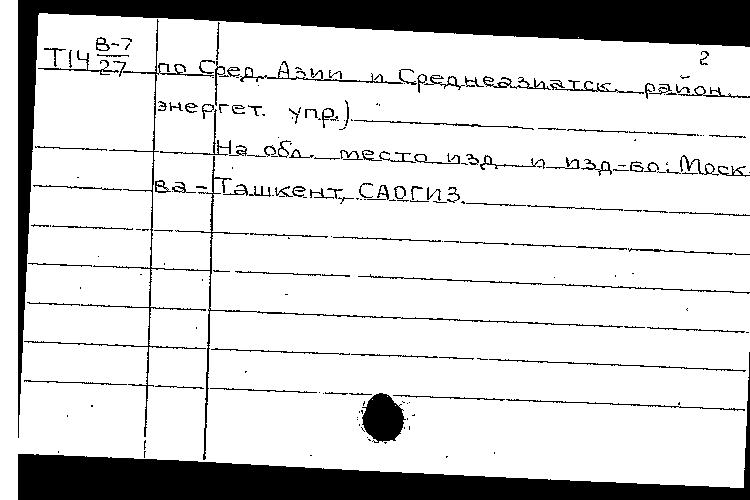 2
Т14 В-7/27 по Сред. Азии и Среднеазиатск. район.
энергет. упр.)
На обл. место изд. и изд-во: Моск-
ва - Ташкент, САОГИЗ.